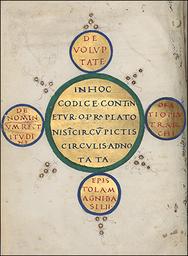 DE
VOLVP
TATE
DE
NOMIN
VM RECT
ITVDI
NE
IN HOC
CODICE CONTIN
ETVR PLATO
NIS CIRCV̄ PICTIS
CIRCVLIS ADNO
TATA
EPIS
TOLAM
AGNI BA
SILII